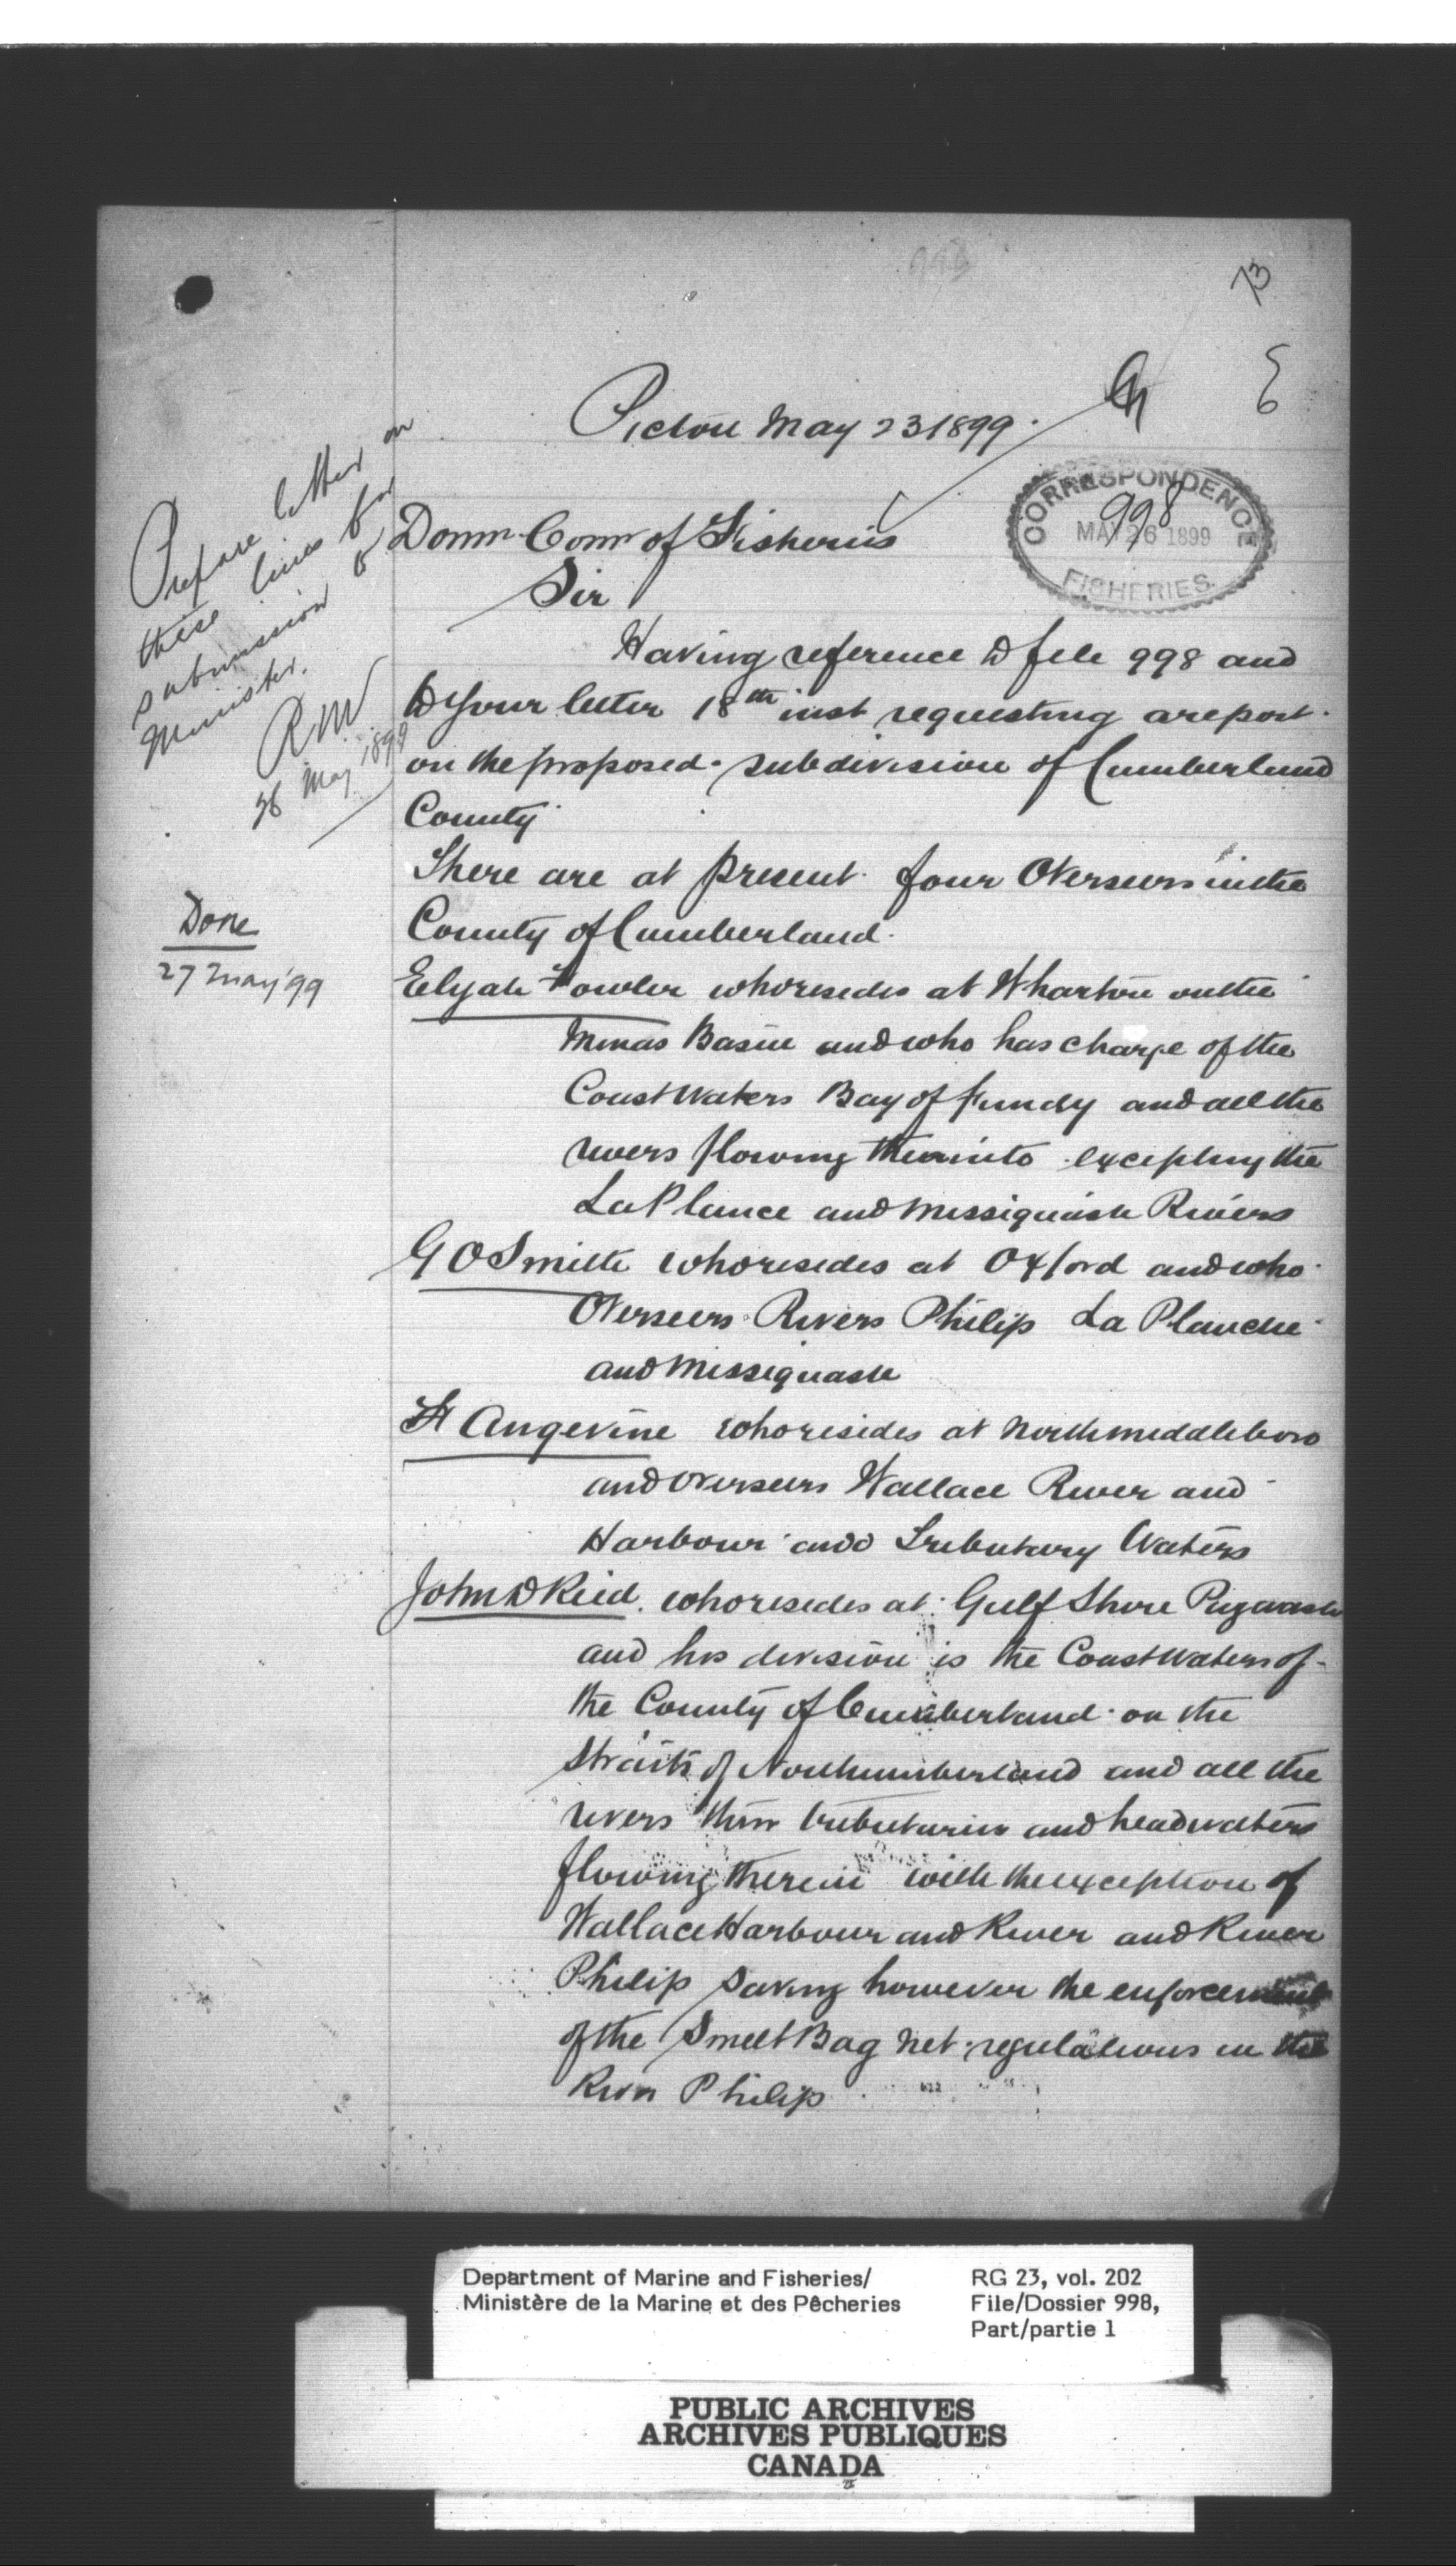 73
Pictou May 23 1899.
CORRESPONDENCE
998
MAY 26 1899
FISHERIES.
Prepare letter on
these lines for
submission to
Minister.
RM
26 May 1899
Done
27 May '99
Domn. Comr of Fisheries
Sir
Having reference to file 998 and
to your letter 18th inst requesting a report
on the proposed subdivision of Cumberland
County
There are at present four Overseers in the
County of Cumberland.
Elijah Fowler who resides at Wharton on the
Minas Basin and who has charge of the
Coast Waters Bay of Fundy and all the
rivers flowing thereinto excepting the
La Plance and Missiquash Rivers
G O Smith who resides at Oxford and who
Overseers Rivers Philip La Planche
and Missiquash
H Angevine who resides at North Middleboro
and overseers Wallace River and
Harbour and Tributary Waters
John D Reid. who resides at Gulf Shore Pugwash
and his division is the Coast Waters of
the County of Cumberland on the
Straits of Northumberland and all the
rivers their tributaries and headwaters
flowing therein with the exception of
Wallace Harbour and River and River
Philip saving however the enforcement
of the Smelt Bag net regulations in the
River Philip
Department of Marine and Fisheries/
Ministère de la Marine et des Pêcheries
RG 23, vol. 202
File/Dossier 998,
Part/partie 1
PUBLIC ARCHIVES
ARCHIVES PUBLIQUES
CANADA